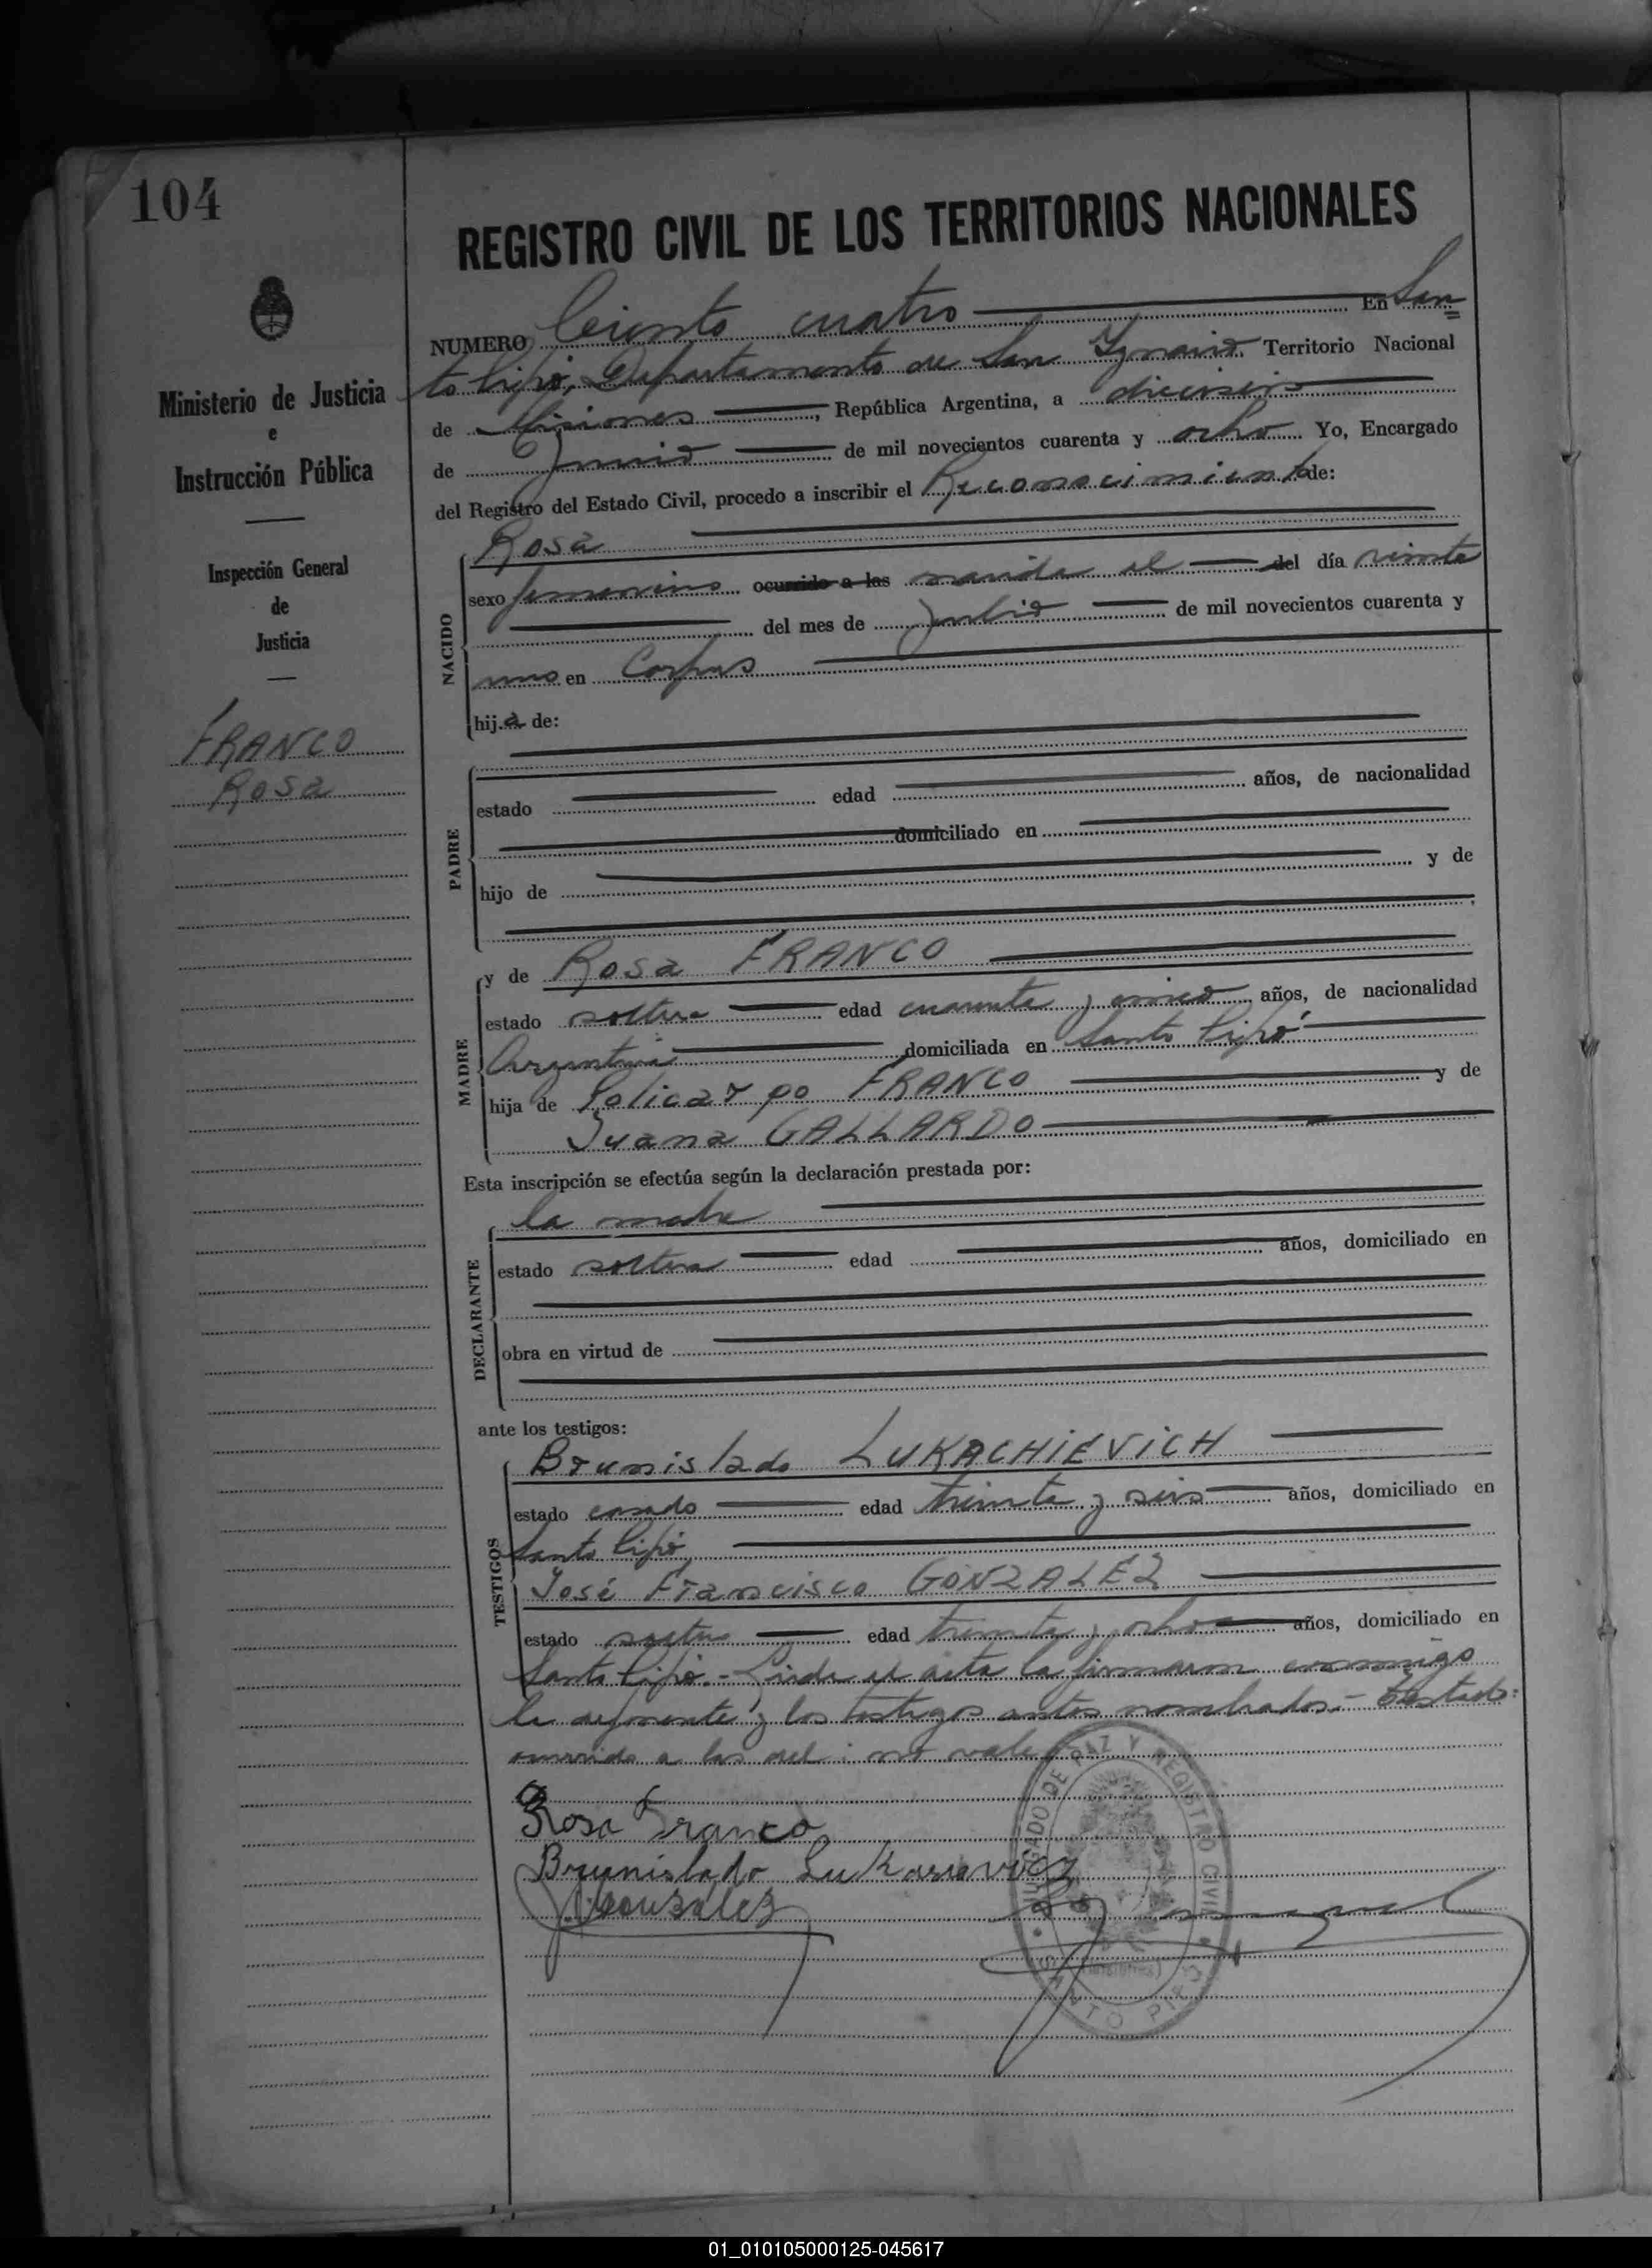 104
REGISTRO CIVIL DE LOS TERRITORIOS NACIONALES
Ministerio de Justicia
e
Instrucción Pública
Inspección General
de
Justicia
FRANCO
Rosa
NUMERO Ciento cuatro En San
to Pipó, Departamento de San Ignacio Territorio Nacional
de Misiones, República Argentina, a dieciseis
de Junio de mil novecientos cuarenta y ocho Yo, Encargado
del Registro del Estado Civil, procedo a inscribir el Reconocimiento de:
NACIDO
Rosa
sexo femenino ocurrido a las nacida el del día veinte
del mes de Julio de mil novecientos cuarenta y
uno en Corpus
hija de:
PADRE
estado edad años, de nacionalidad
domiciliado en
hijo de y de
MADRE
y de Rosa FRANCO
estado soltera edad cuarenta y cinco años, de nacionalidad
Argentina domiciliada en Santo Pipó
hija de Policarpo FRANCO y de
Juana GALLARDO
Esta inscripción se efectúa según la declaración prestada por:
DECLARANTE
la madre
estado soltera edad años, domiciliado en
obra en virtud de
ante los testigos:
TESTIGOS
Brunislado LUKACHIEVICH
estado casado edad treinta y seis años, domiciliado en
Santo Pipó
José Francisco GONZALEZ
estado soltero edad treinta y ocho años, domiciliado en
Santo Pipó.- Leida el acta la firmaron conmigo
la deponente y los testigos antes nombrados.- Testado:
ocurrido a las del: no vale
Rosa Franco
Brunislado
J. Gonsalez
JUZGADO DE PAZ Y REGISTRO CIVIL
SANTO PIPÓ
01_010105000125-045617